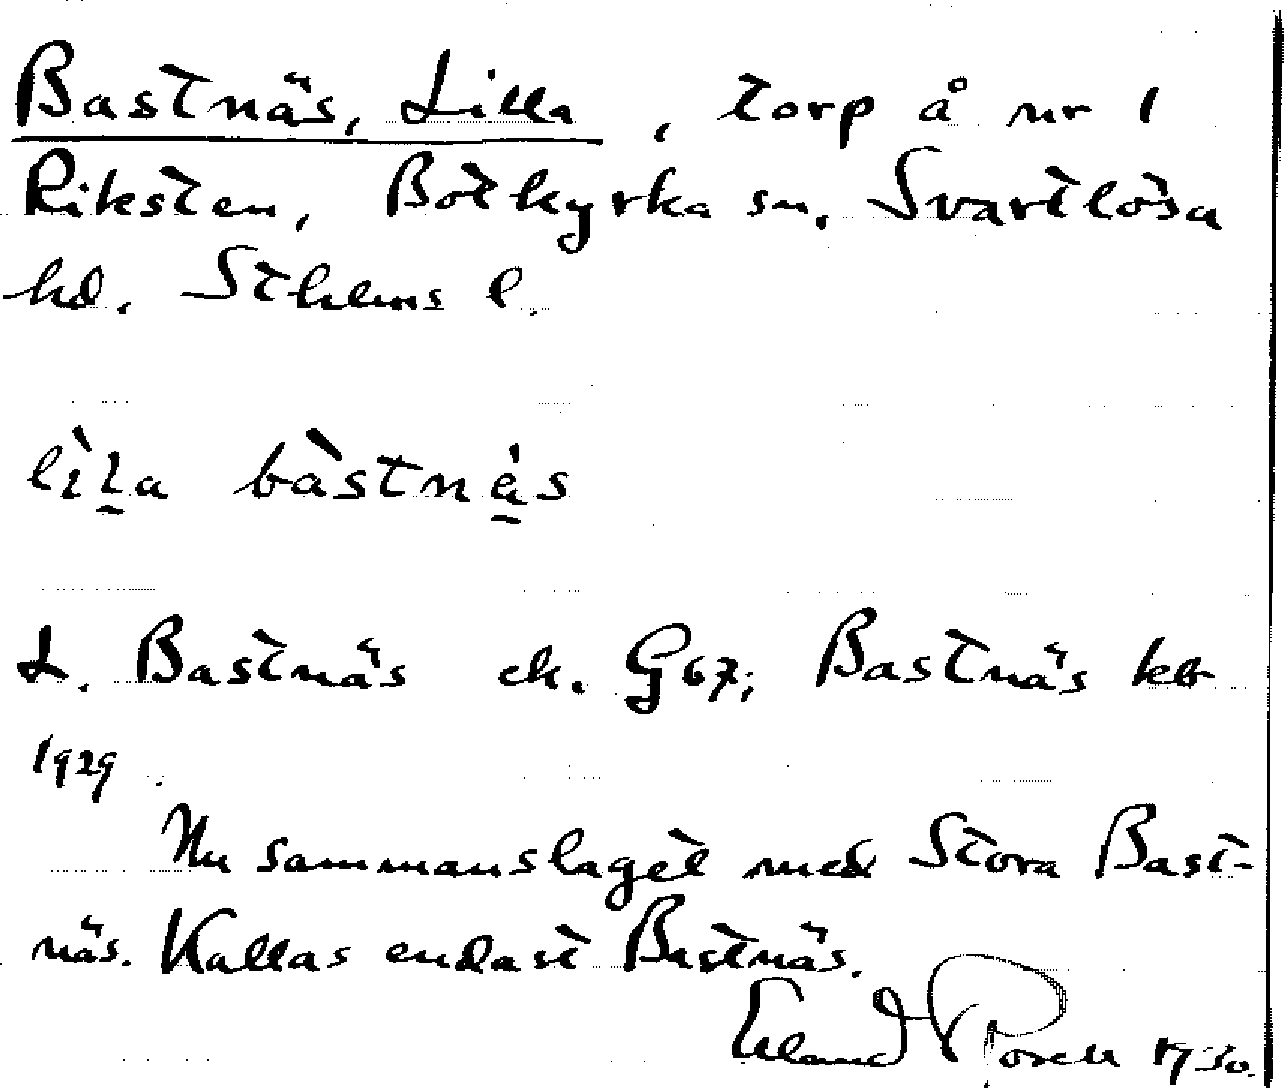 Bastnäs, Lilla, torp å nr 1
Riksten, Botkyrka sn. Svartlösa
hd. Sthlms l.
lìl̠a bàstnä̠́s
L. Bastnäs ek. G67; Bastnäs
1929.
Nu sammanslaget med Stora Bast-
näs. Kallas endast Bastnäs.
Erland Rosell 1930.